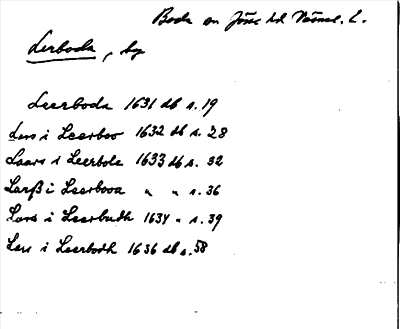 Boda sn Jösse hd Värml. l.
Lerboda, by
Leerboda 1631 db s. 19
Lars i Leerboo 1632 db s. 28
Laars i Leerbole 1633 db s. 32
Larß i Leerbooa " " s. 36
Lars i Leerbodh 1634 " s. 39
Lars i Leerbodh 1636 db s. 58